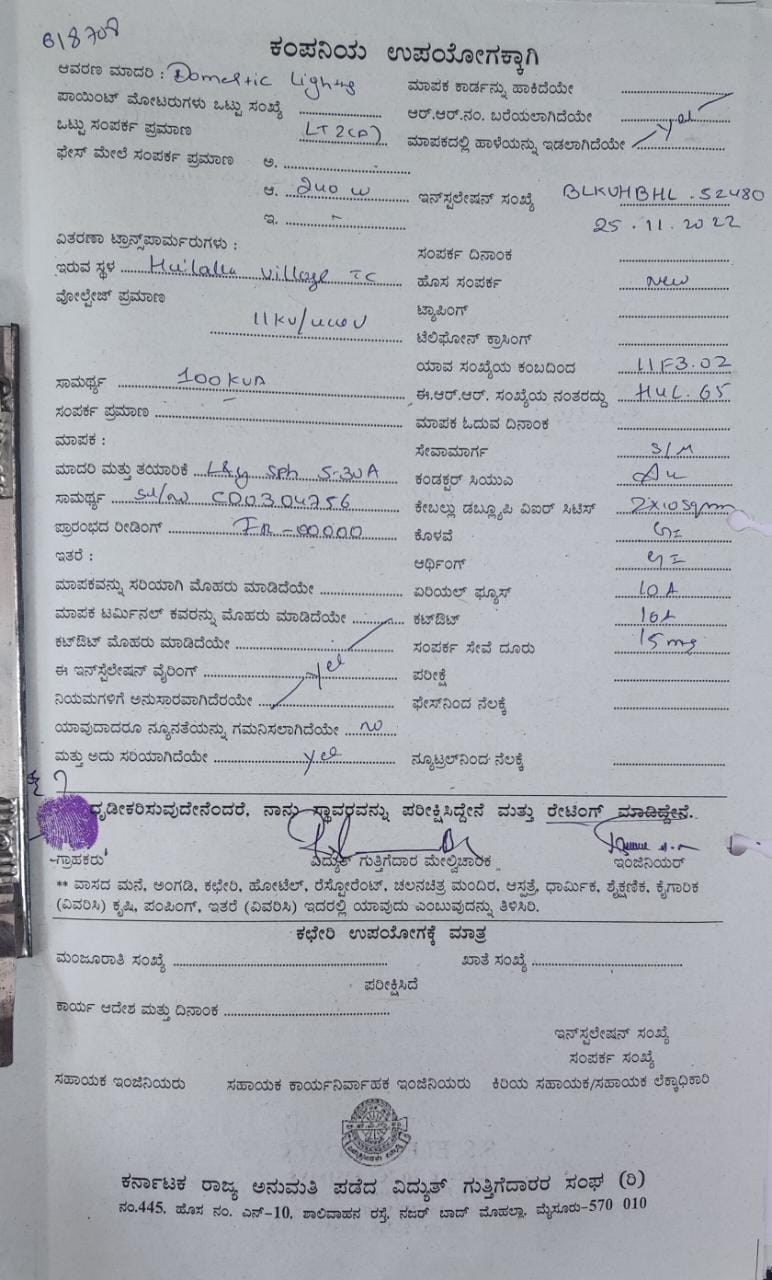 618708
ಕಂಪನಿಯ ಉಪಯೋಗಕ್ಕಾಗಿ
ಆವರಣ ಮಾದರಿ : Domestic Lighting
ಮಾಪಕ ಕಾರ್ಡನ್ನು ಹಾಕಿದೆಯೇ
ಪಾಯಿಂಟ್ ಮೋಟರುಗಳು ಒಟ್ಟು ಸಂಖ್ಯೆ
ಆರ್.ಆರ್.ನಂ. ಬರೆಯಲಾಗಿದೆಯೇ yes
ಒಟ್ಟು ಸಂಪರ್ಕ ಪ್ರಮಾಣ LT2(A)
ಮಾಪಕದಲ್ಲಿ ಹಾಳೆಯನ್ನು ಇಡಲಾಗಿದೆಯೇ
ಫೇಸ್ ಮೇಲೆ ಸಂಪರ್ಕ ಪ್ರಮಾಣ ಅ.
ಆ. 240 W
ಇನ್‌ಸ್ಟಲೇಷನ್ ಸಂಖ್ಯೆ BLKUHBHL.52480
ಇ. -
25.11.2022
ವಿತರಣಾ ಟ್ರಾನ್ಸ್‌ಪಾರ್ಮರುಗಳು :
ಸಂಪರ್ಕ ದಿನಾಂಕ
ಇರುವ ಸ್ಥಳ Village TC
ಹೊಸ ಸಂಪರ್ಕ New
ವೋಲ್ಟೇಜ್ ಪ್ರಮಾಣ
ಟ್ಯಾಪಿಂಗ್
11KV/440V
ಟೆಲಿಫೋನ್ ಕ್ರಾಸಿಂಗ್
ಯಾವ ಸಂಖ್ಯೆಯ ಕಂಬದಿಂದ 11F3.02
ಸಾಮರ್ಥ್ಯ 100KVA
ಈ.ಆರ್.ಆರ್. ಸಂಖ್ಯೆಯ ನಂತರದ್ದು HUL.65
ಸಂಪರ್ಕ ಪ್ರಮಾಣ
ಮಾಪಕ ಓದುವ ದಿನಾಂಕ
ಮಾಪಕ :
ಸೇವಾಮಾರ್ಗ S/M
ಮಾದರಿ ಮತ್ತು ತಯಾರಿಕೆ L&G SPh 5-30A
ಕಂಡಕ್ಟರ್ ಸಿಯುಎ
ಸಾಮರ್ಥ್ಯ Sl/no CD0304756
ಕೇಬಲ್ಲು ಡಬ್ಲ್ಯೂಪಿ ವಿಐರ್ ಸಿಟಿಸ್ 2X10 Sqmm
ಪ್ರಾರಂಭದ ರೀಡಿಂಗ್ IR-00000
ಕೊಳವೆ GI
ಇತರೆ :
ಆರ್ಥಿಂಗ್ GI
ಮಾಪಕವನ್ನು ಸರಿಯಾಗಿ ಮೊಹರು ಮಾಡಿದೆಯೇ
ಏರಿಯಲ್ ಫ್ಯೂಸ್ 10A
ಮಾಪಕ ಟರ್ಮಿನಲ್ ಕವರನ್ನು ಮೊಹರು ಮಾಡಿದೆಯೇ
ಕಟ್‌ಔಟ್ 10A
ಕಟ್‌ಔಟ್ ಮೊಹರು ಮಾಡಿದೆಯೇ
ಸಂಪರ್ಕ ಸೇವೆ ದೂರು 15 mg
ಈ ಇನ್‌ಸ್ಟೆಲೇಷನ್ ವೈರಿಂಗ್ yes
ಪರೀಕ್ಷೆ
ನಿಯಮಗಳಿಗೆ ಅನುಸಾರವಾಗಿದೆರಯೇ
ಫೇಸ್‌ನಿಂದ ನೆಲಕ್ಕೆ
ಯಾವುದಾದರೂ ನ್ಯೂನತೆಯನ್ನು ಗಮನಿಸಲಾಗಿದೆಯೇ no
ಮತ್ತು ಅದು ಸರಿಯಾಗಿದೆಯೇ yes
ನ್ಯೂಟ್ರಲ್‌ನಿಂದ ನೆಲಕ್ಕೆ
ಧೃಡೀಕರಿಸುವುದೇನೆಂದರೆ, ನಾನು ಸ್ಥಾವರವನ್ನು ಪರೀಕ್ಷಿಸಿದ್ದೇನೆ ಮತ್ತು ರೇಟಿಂಗ್ ಮಾಡಿದ್ದೇನೆ.
ಗ್ರಾಹಕರು ವಿದ್ಯುತ್ ಗುತ್ತಿಗೆದಾರ ಮೇಲ್ವಿಚಾರಕ ಇಂಜಿನಿಯರ್
** ವಾಸದ ಮನೆ, ಅಂಗಡಿ, ಕಛೇರಿ, ಹೋಟೆಲ್, ರೆಸ್ಟೋರೆಂಟ್, ಚಲನಚಿತ್ರ ಮಂದಿರ, ಆಸ್ಪತ್ರೆ, ಧಾರ್ಮಿಕ, ಶೈಕ್ಷಣಿಕ, ಕೈಗಾರಿಕ
(ವಿವರಿಸಿ) ಕೃಷಿ, ಪಂಪಿಂಗ್, ಇತರೆ (ವಿವರಿಸಿ) ಇದರಲ್ಲಿ ಯಾವುದು ಎಂಬುವುದನ್ನು ತಿಳಿಸಿರಿ.
ಕಛೇರಿ ಉಪಯೋಗಕ್ಕೆ ಮಾತ್ರ
ಮಂಜೂರಾತಿ ಸಂಖ್ಯೆ ಖಾತೆ ಸಂಖ್ಯೆ
ಪರೀಕ್ಷಿಸಿದೆ
ಕಾರ್ಯ ಆದೇಶ ಮತ್ತು ದಿನಾಂಕ
ಇನ್‌ಸ್ಟಲೇಷನ್ ಸಂಖ್ಯೆ
ಸಂಪರ್ಕ ಸಂಖ್ಯೆ
ಸಹಾಯಕ ಇಂಜಿನಿಯರು ಸಹಾಯಕ ಕಾರ್ಯನಿರ್ವಾಹಕ ಇಂಜಿನಿಯರು ಕಿರಿಯ ಸಹಾಯಕ/ಸಹಾಯಕ ಲೆಕ್ಕಾಧಿಕಾರಿ
ಕರ್ನಾಟಕ ರಾಜ್ಯ ಅನುಮತಿ ಪಡೆದ ವಿದ್ಯುತ್ ಗುತ್ತಿಗೆದಾರರ ಸಂಘ (ರಿ)
ನಂ.445, ಹೊಸ ನಂ. ಎನ್-10, ಶಾಲಿವಾಹನ ರಸ್ತೆ, ನಜರ್ ಬಾದ್ ಮೊಹಲ್ಲಾ, ಮೈಸೂರು-570 010